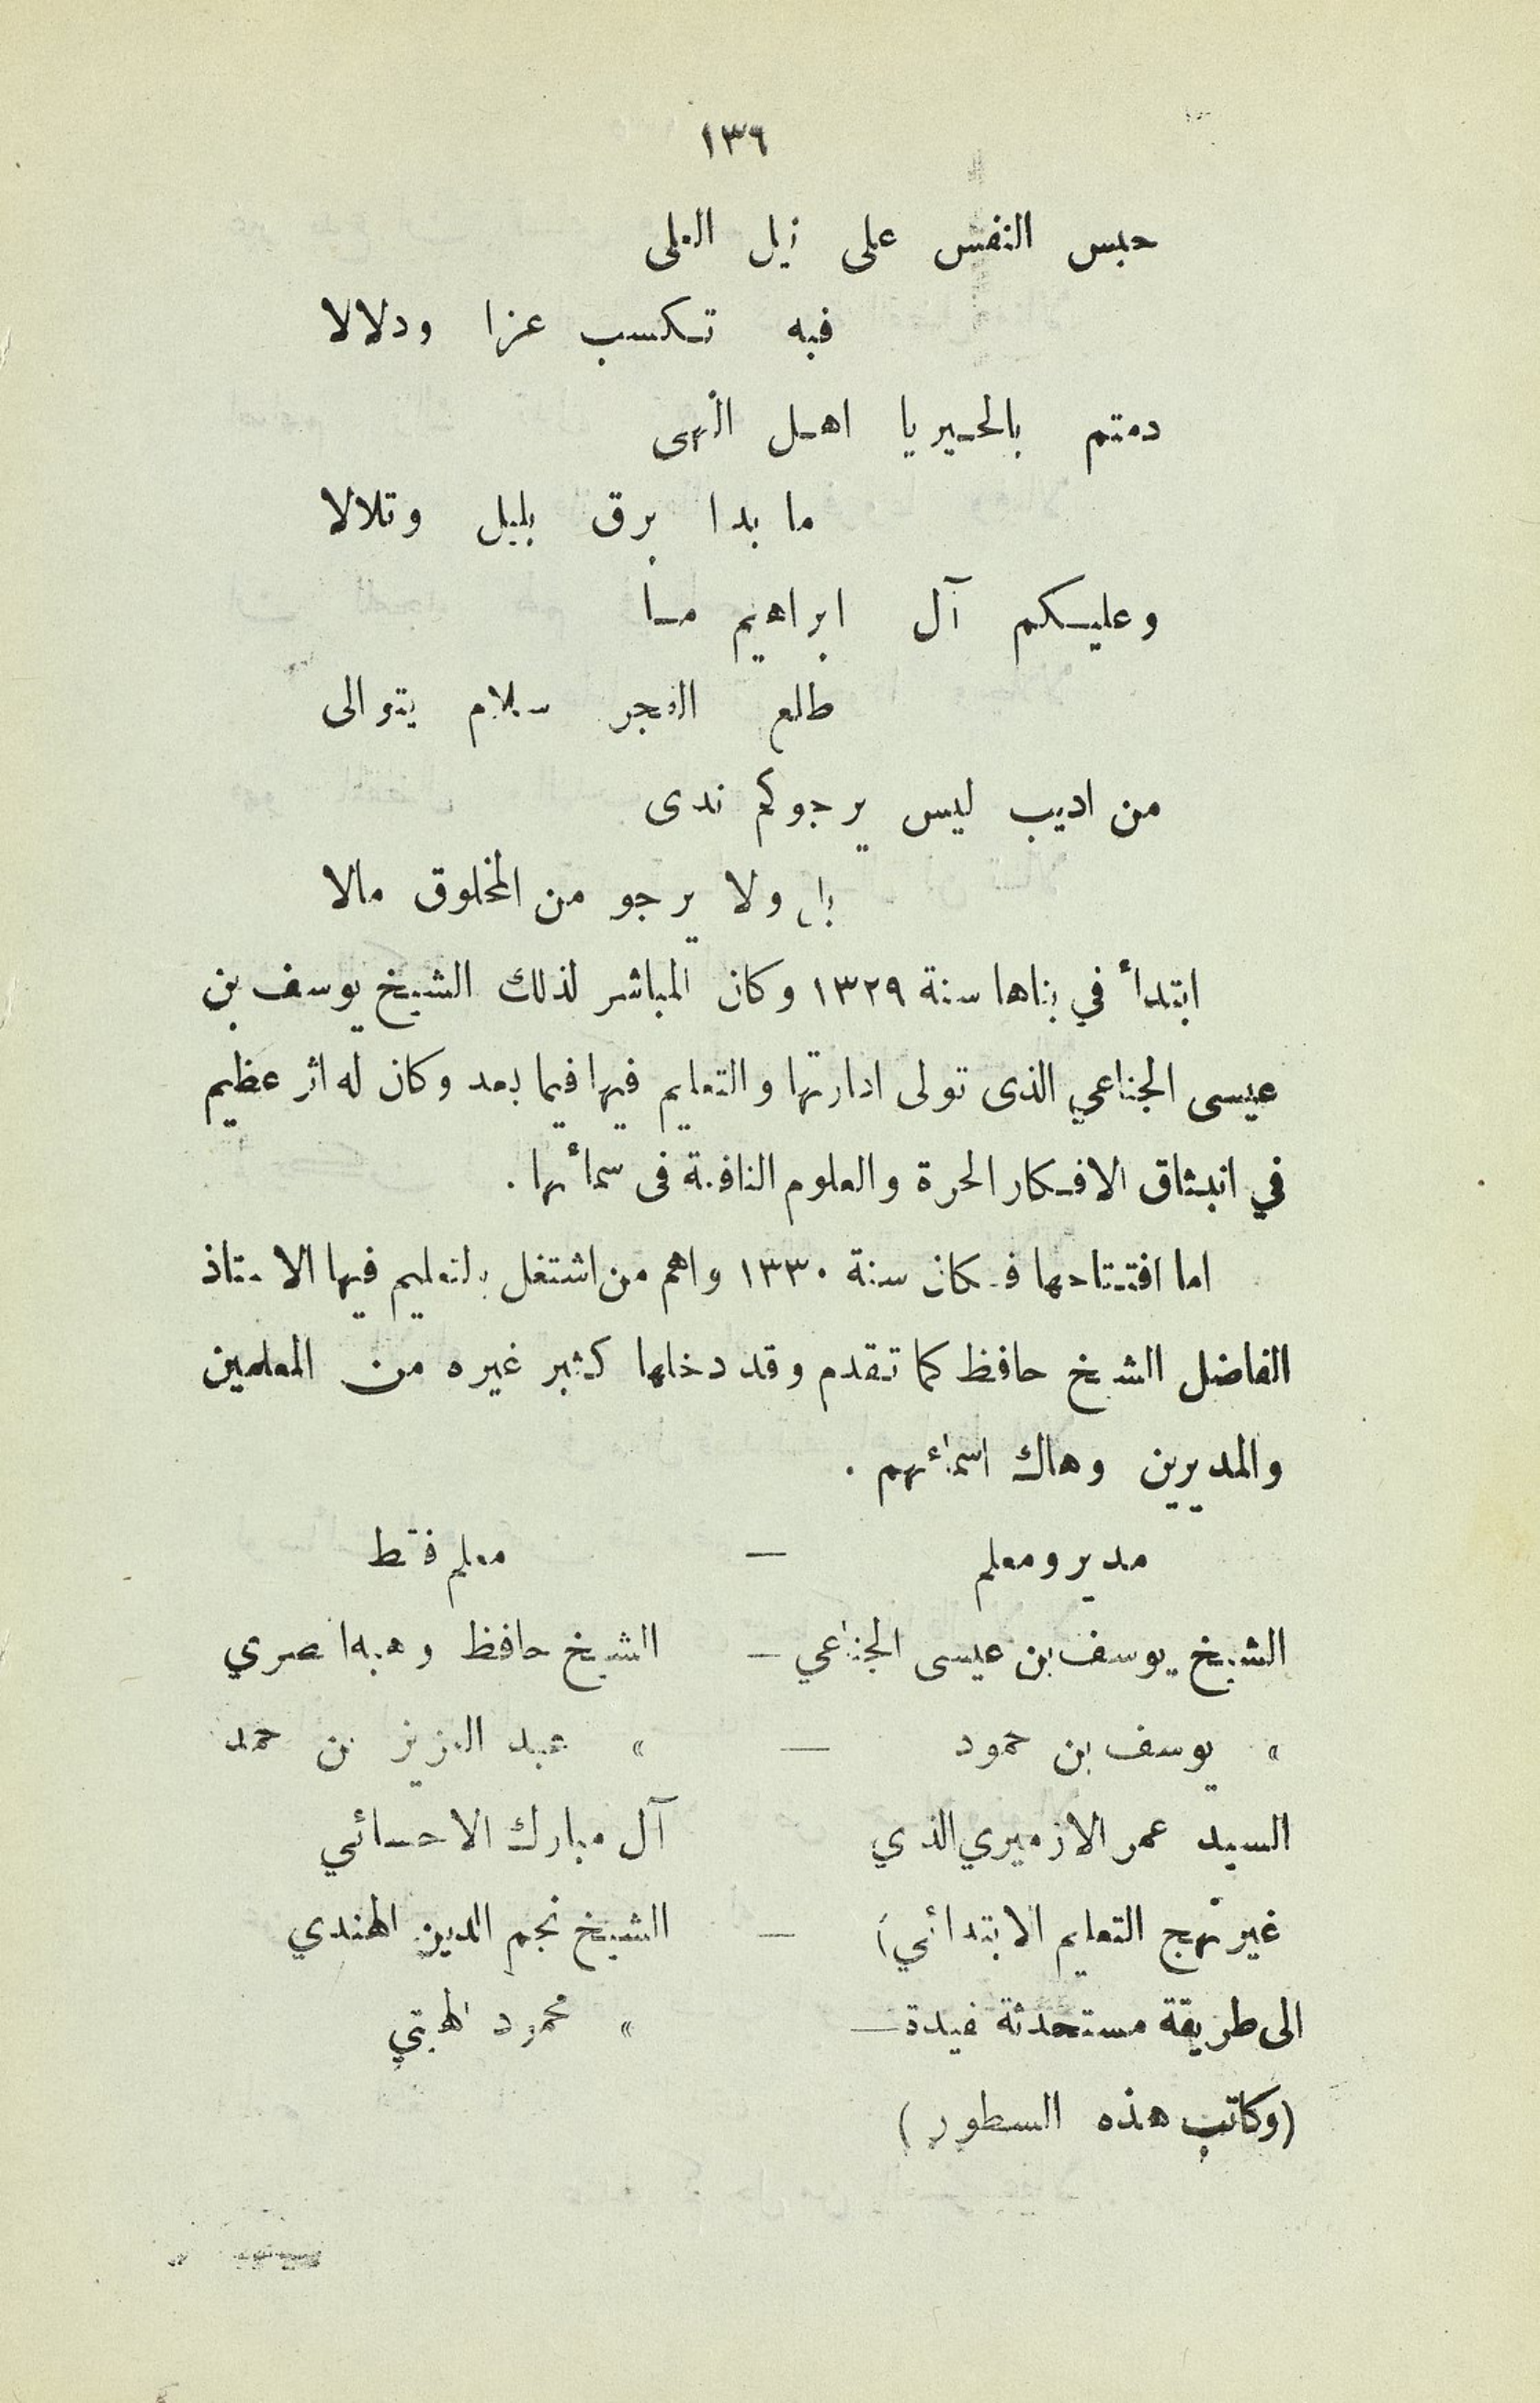 ١٣٦
حبس النفس على نيل العلى
فبه تكسب عزا ودلالا
دمتم بالخير يا اهل النهى
ما بدا برق بليل وتلالا
وعليكم آل ابراهيم ما
طلع الفجر سلام يتوالى
من اديب ليس يرجوكم ندى
لا ولا يرجو من المخلوق مالا
ابتدأ في بناها سنة ١٣٢٩ وكان المباشر لذلك الشيخ يوسف بن
عيسى الجناعي الذى تولى ادارتها والتعليم فيها فيما بعد وكان له اثر عظيم
في انبثاق الافكار الحرة والعلوم النافعة فى سمائها .
اما افتتاحها فكان سنة ١٣٣٠ واهم من اشتغل بالتعليم فيها الاستاذ
الفاضل الشيخ حافظ كما تقدم وقد دخلها كثير غيره من المعلمين
والمديرين وهاك اسمائهم .
مدير ومعلم — معلم فقط
الشيخ يوسف بن عيسى الجناعي — الشيخ حافظ وهبه المصري
» يوسف بن حمود — » عبد العزيز بن حمد
السيد عمر الازميري الذي آل مبارك الاحسائي
غير نهج التعليم الابتدائي — الشيخ نجم الدين الهندي
الى طريقة مستحدثة مفيدة — » محمود الهيتي
(وكاتب هذه السطور)